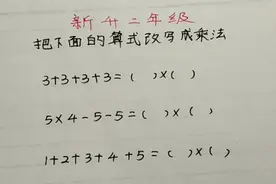 新升二年级
把下面的算式改写成乘法
3+3+3+3=( )×( )
5×4-5-5=( )×( )
1+2+3+4+5=( )×( )